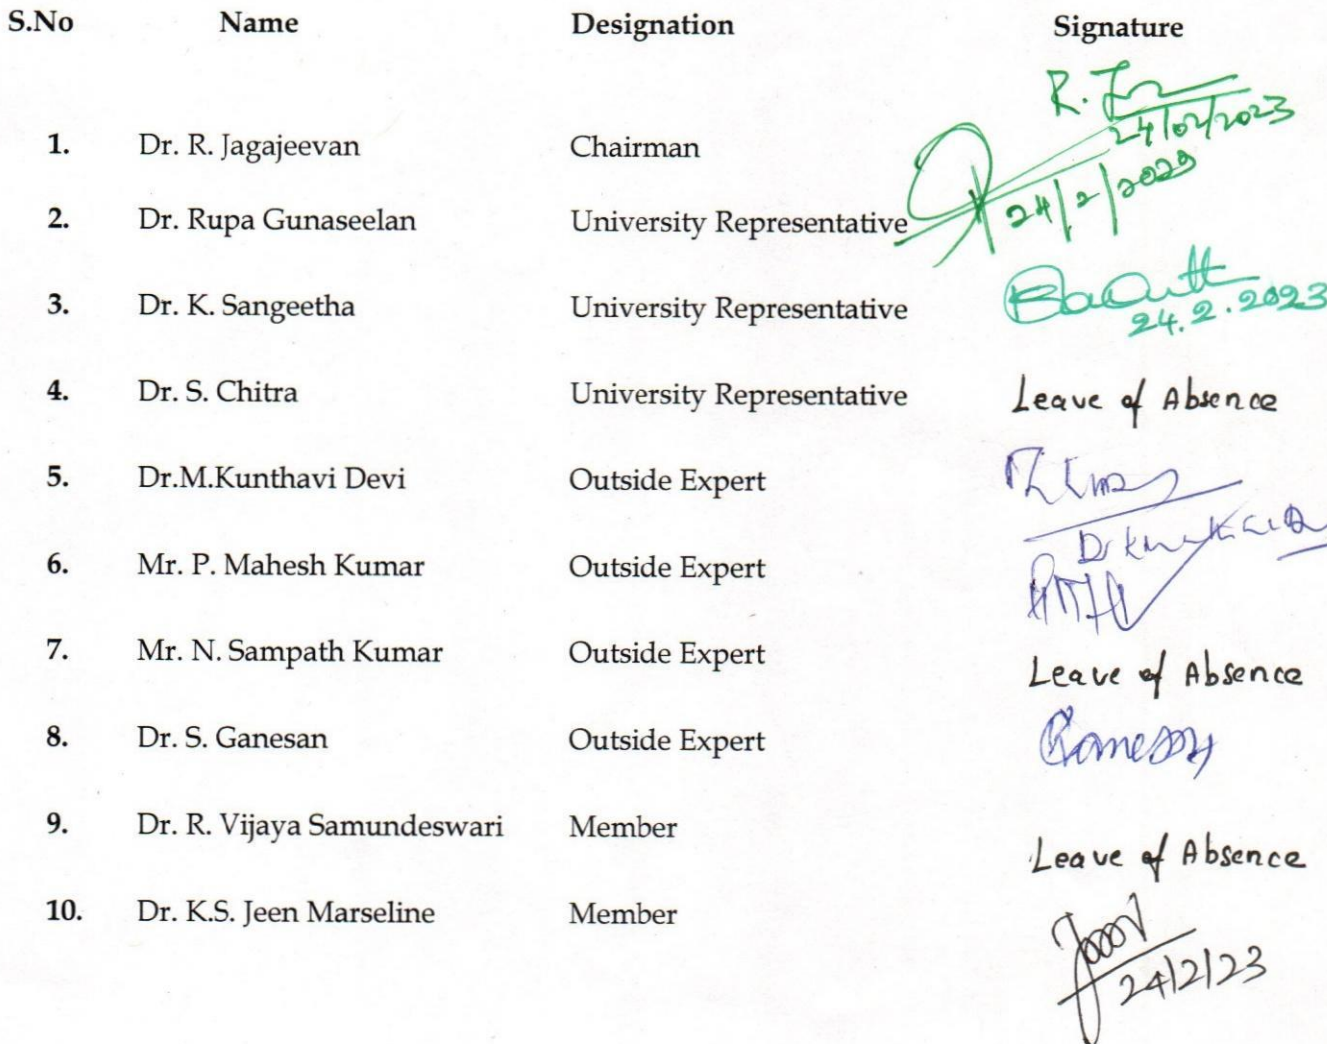 S.No Name Designation Signature
1. Dr. R. Jagajeevan Chairman R. 24/02/2023
2. Dr. Rupa Gunaseelan University Representative 24/2/2023
3. Dr. K. Sangeetha University Representative 24.2.2023
4. Dr. S. Chitra University Representative Leave of Absence
5. Dr.M.Kunthavi Devi Outside Expert
6. Mr. P. Mahesh Kumar Outside Expert
7. Mr. N. Sampath Kumar Outside Expert Leave of Absence
8. Dr. S. Ganesan Outside Expert
9. Dr. R. Vijaya Samundeswari Member Leave of Absence
10. Dr. K.S. Jeen Marseline Member 24/2/23